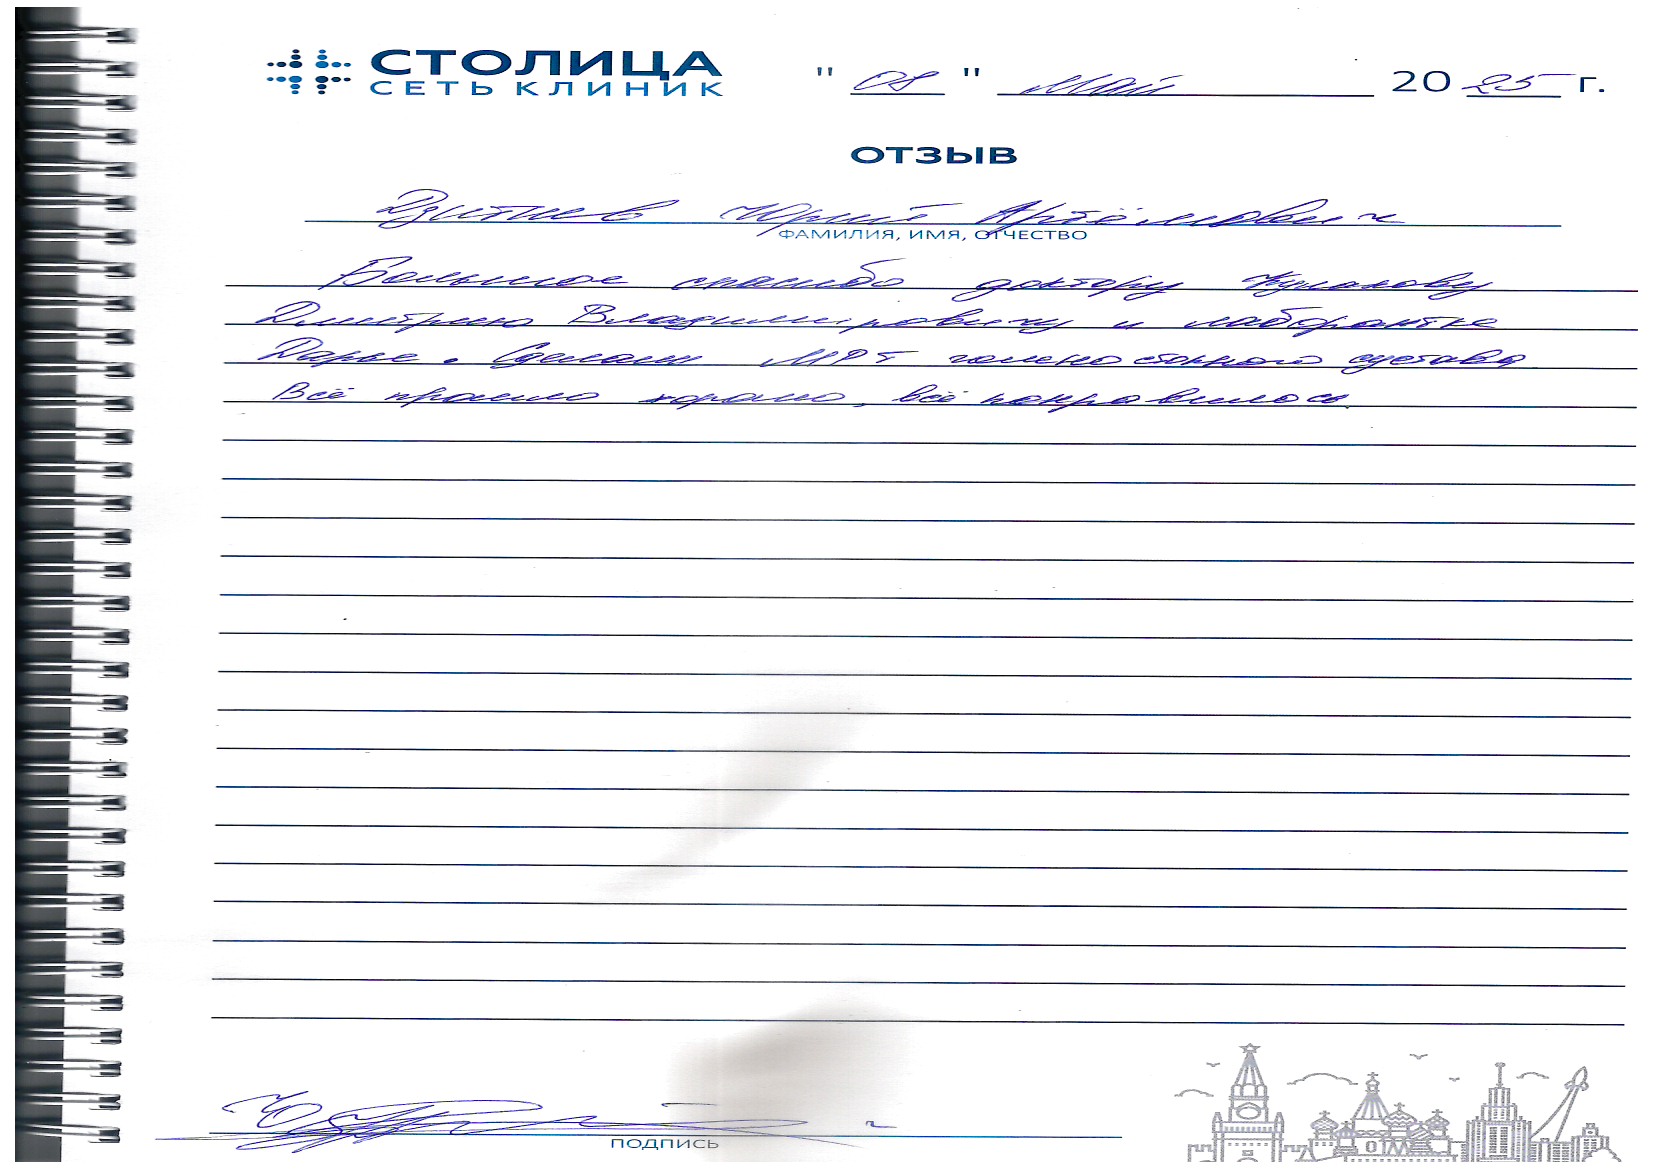 СТОЛИЦА
СЕТЬ КЛИНИК
" 08 " май 2025 г.
ОТЗЫВ
Юрий Артёмович
ФАМИЛИЯ, ИМЯ, ОТЧЕСТВО
Большое спасибо доктору Кулакову
Дмитрию Владимировичу и лаборантке
Дарье. Сделали МРТ голеностопного сустава
Всё прошло хорошо, всё понравилось.
ПОДПИСЬ